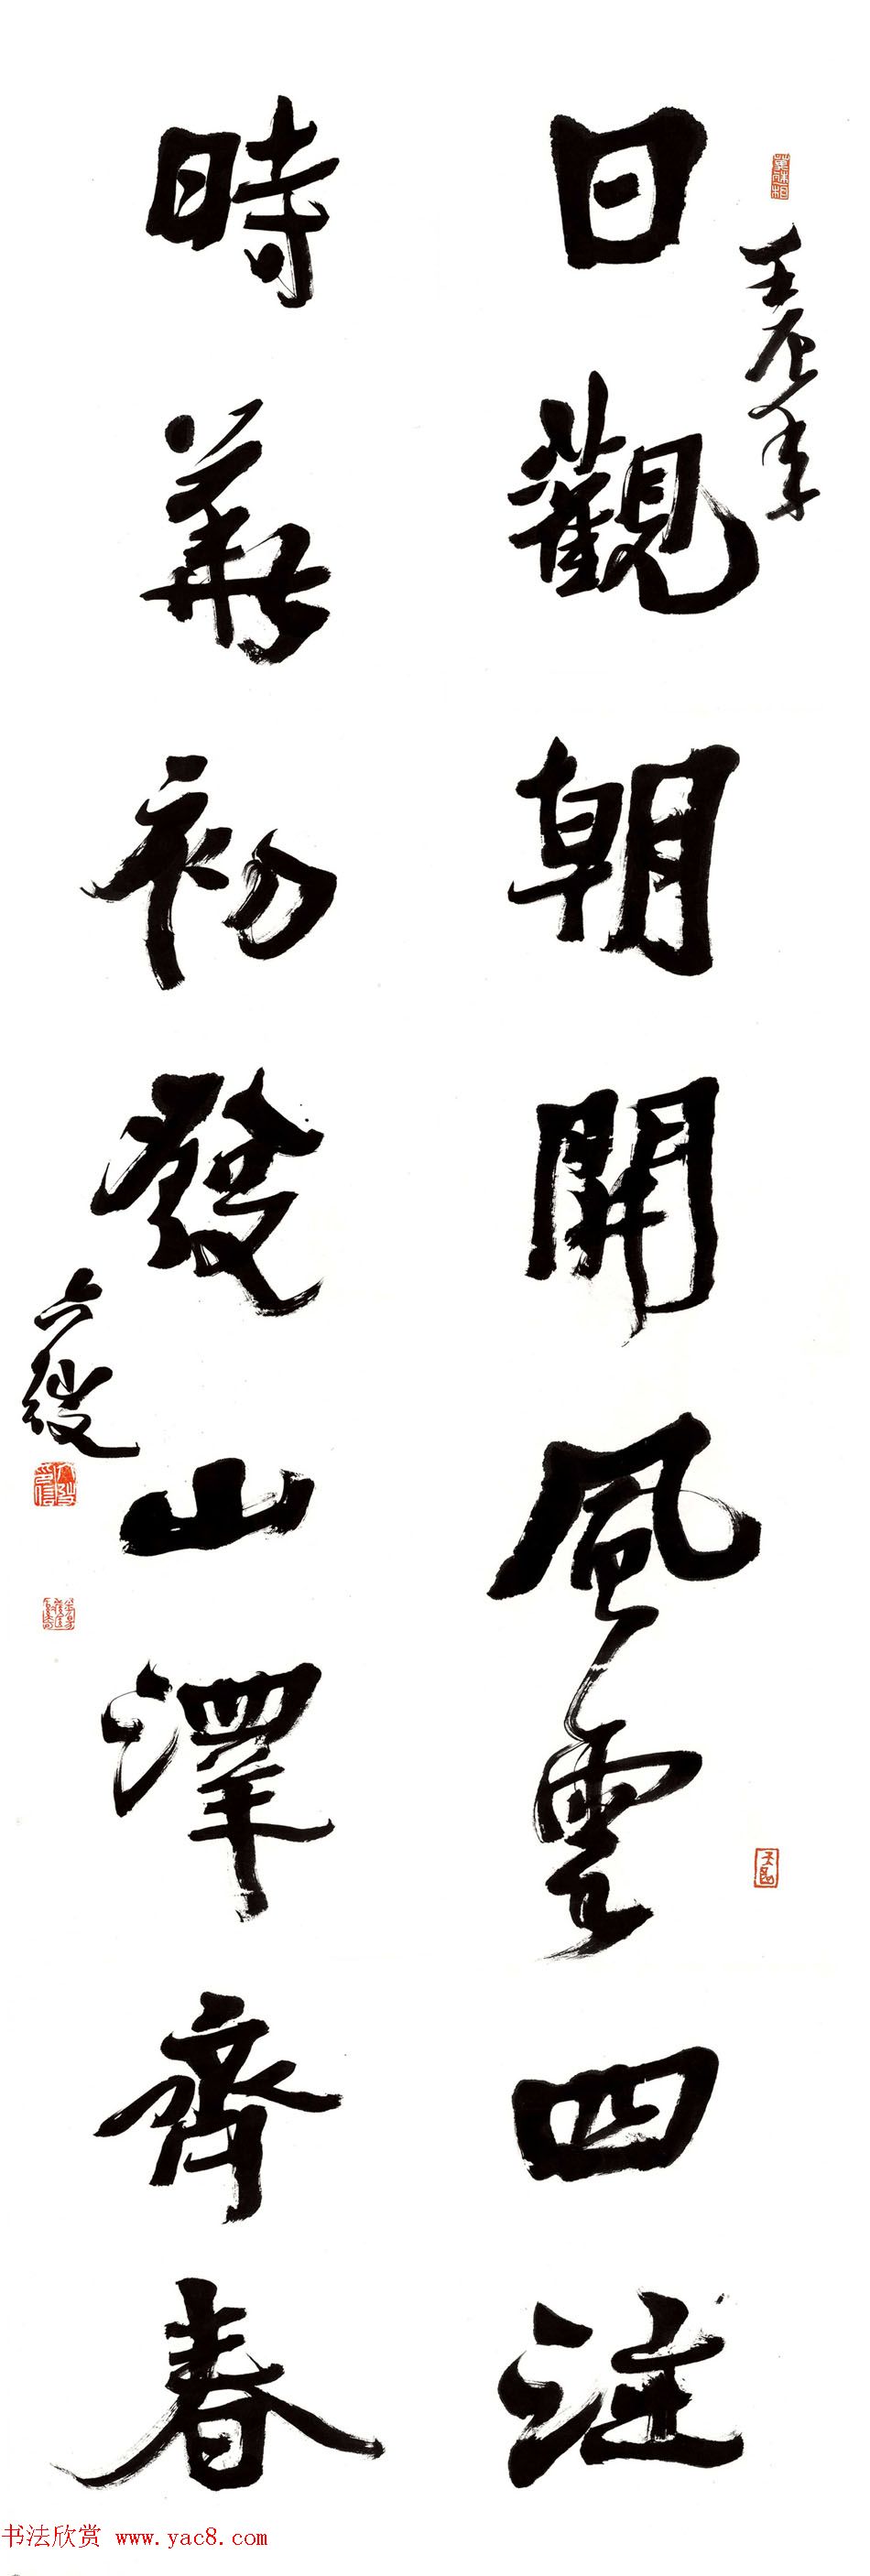 壬辰年
日觀朝開風雲四注
時華初發山澤齊春
六叟
书法欣赏 www.yac8.com